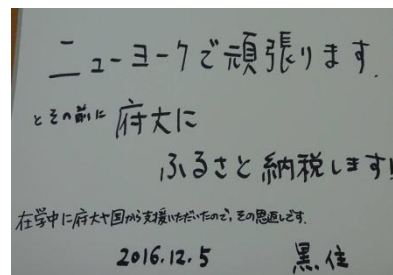 ニューヨークで頑張ります.
とその前に 府大に
ふるさと納税します!
在学中に府大や国から支援いただいたので、その恩返しです.
2016.12.5 黒住